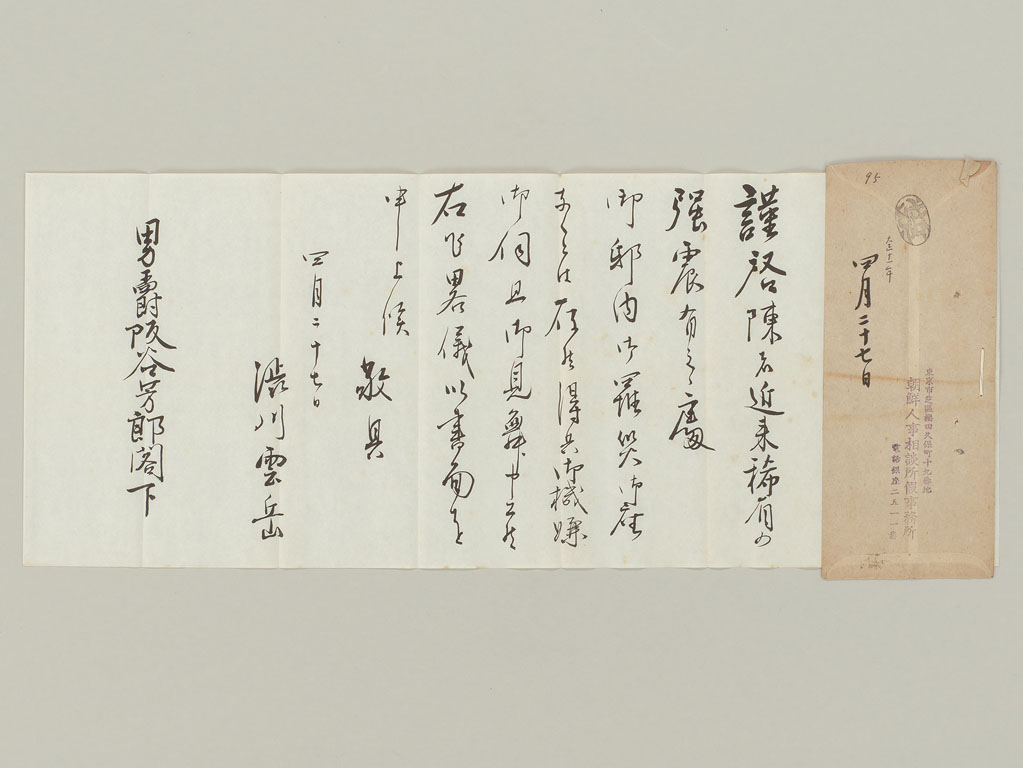 95
大正十一年
四月二十七日
東京市芝區櫻田久保町十九番地
朝鮮人事相談所假事務所
電話銀座二五一一番
謹啓陳者近来稀有の
强震有之候處
御邸内御羅災御座
なくとは存候得共御機嫌
御伺旦御見舞申上度
右乍畧儀以書面を
申上候 敬具
四月二十七日
澁川雲岳
男爵阪谷芳郎閣下